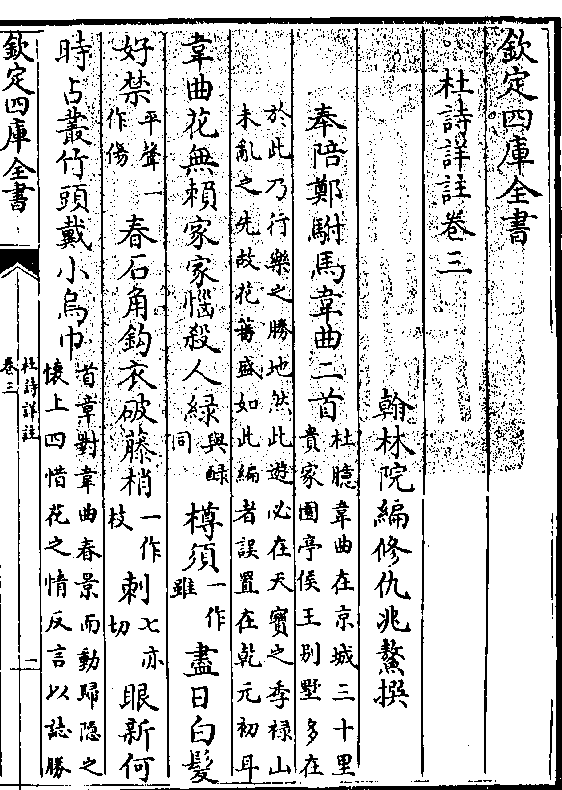 欽定四庫全書
杜詩詳註卷三
翰林院編修仇兆鰲撰
奉陪鄭駙馬韋曲二首杜臆韋曲在京城三十里貴家園亭侯王别墅多在
於此乃行樂之勝地然此遊必在天寳之季禄山未亂之先故花舊盛如此編者誤置在乾元初耳
韋曲花無賴家家惱殺人緑與醁同樽須一作雖盡日白髪
好禁平聲一作傷春石角鈎衣破藤梢一作枝刺七亦切眼新何
時占叢竹頭戴小烏巾首章對韋曲春景而動歸隐之懐上四惜花之情反言以誌勝
欽定四庫全書
杜詩詳註
卷三
一